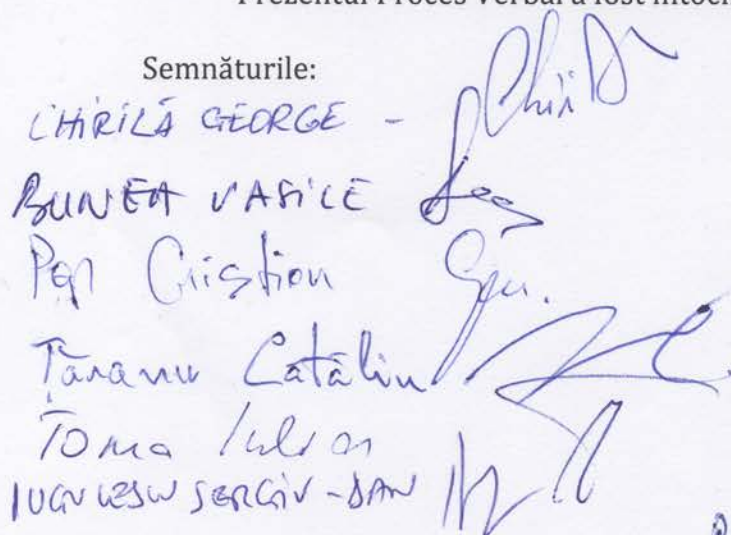 Prezentul Proces Verbal a fost întoc
Semnăturile:
CHIRILĂ GEORGE -
BUNEA VASILE
Pop Cristian
Țăranu Cătălin
Toma Iulian
SERGIU-DAN